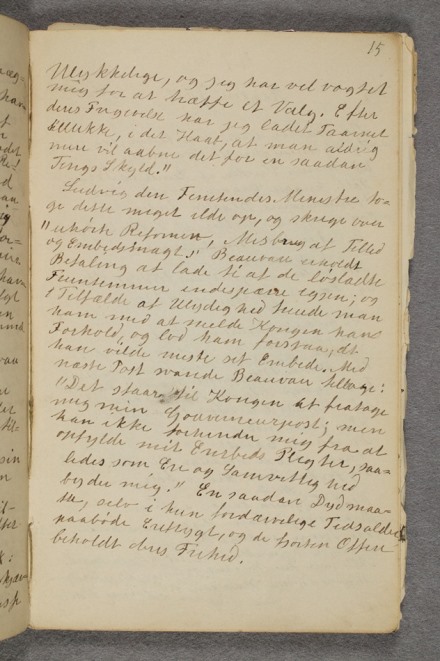 15
Ulykkelige, og jeg har vel vogtet
mig for at træffe et Valg. Efter
deres Frigivelse har jeg ladet Taarnet
lukke, i det Haab, at man aldrig
mere vil aabne det for en saadan
Tings Skyld."
Ludvig den Femtendes Ministre to-
ge dette meget ilde op, og skrege over
"uhørt Reformen, Misbrug af Tillid
og Embedsmagt." Beauvau erholdt
Befaling at lade ti af de løsladte
Fruentimmer indespærre igjen; og
i Tilfælde af Ulydighed truede man
ham med at melde Kongen hans
Forhold, og lod ham forstaae, at
han vilde miste sit Embede. Med
næste Post svarede Beauvau tilbage:
"Det staar til Kongen at fratage
mig min Gouverneurpost; men
han ikke forhindre mig fra at
opfylde mit Embeds Pligter, saa-
ledes som Ære og Samvittighed
byder mig." En saadan Dyd maa-
te, selv i hin fordærvelige Tidsalder
paabyde Ærefrygt, og de fjorten Offere
beholdt deres Frihed.